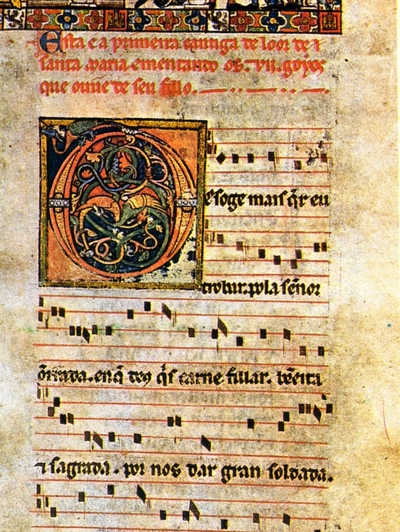 Esta e a primeira cantiga de loor de
santa maria ementando os .vii. goyos
que ouue de seu fillo.
Desoge mais q̇r eu
trobar. pola señor
õrrada. en q̃ deꝰ q̇s carne fillar. bẽeita
⁊ sagrada. por nos dar gran soldada.